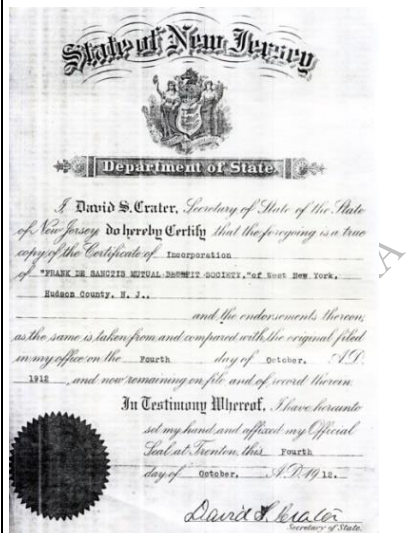 State of New Jersey
Department of State.
I, David S. Crater, Secretary of State of the State
of New Jersey do hereby Certify that the foregoing is a true
copy of the Certificate of Incorporation
of "FRANK DE SANCTIS MUTUAL BENEFIT SOCIETY," of West New York,
Hudson County, N. J.,
and the endorsements thereon,
as the same is taken from and compared with the original filed
in my office on the Fourth day of October, A.D.
1912, and now remaining on file and of record therein.
In Testimony Whereof, I have hereunto
set my hand and affixed my Official
Seal at Trenton, this Fourth
day of October, A.D. 1912.
David S. Crater
Secretary of State.
A